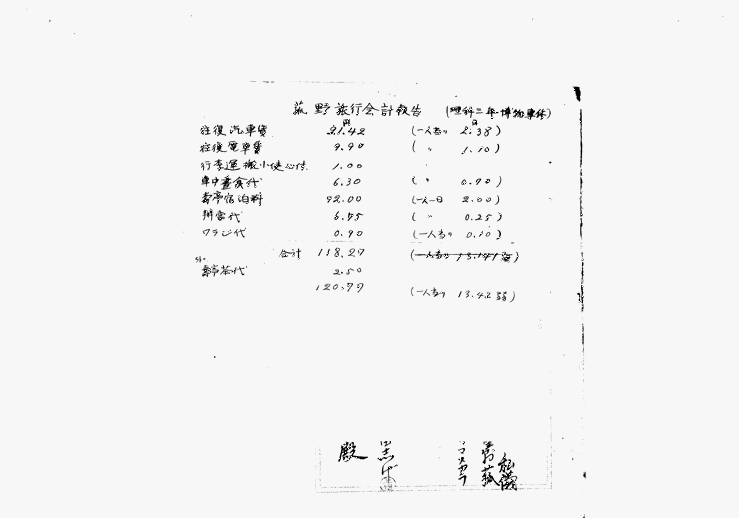 菰野旅行会計報告 (理科三年 博物専修)
往復汽車賃 21.42円 (一人當り 2.38円)
往復電車賃 9.90 ( 〃 1.10)
行李運搬小使心付 1.00
車中晝食代 6.30 ( 〃 0.70)
壽亭宿泊料 72.00 (一人一日 2.00)
辨當代 6.75 ( 〃 0.25)
ワラジ代 0.90 (一人當り 0.10)
合計 118.27 (一人當り 13.141强)
壽亭茶代 2.50
120.77 (一人當り 13.42弱)
私儀
殿